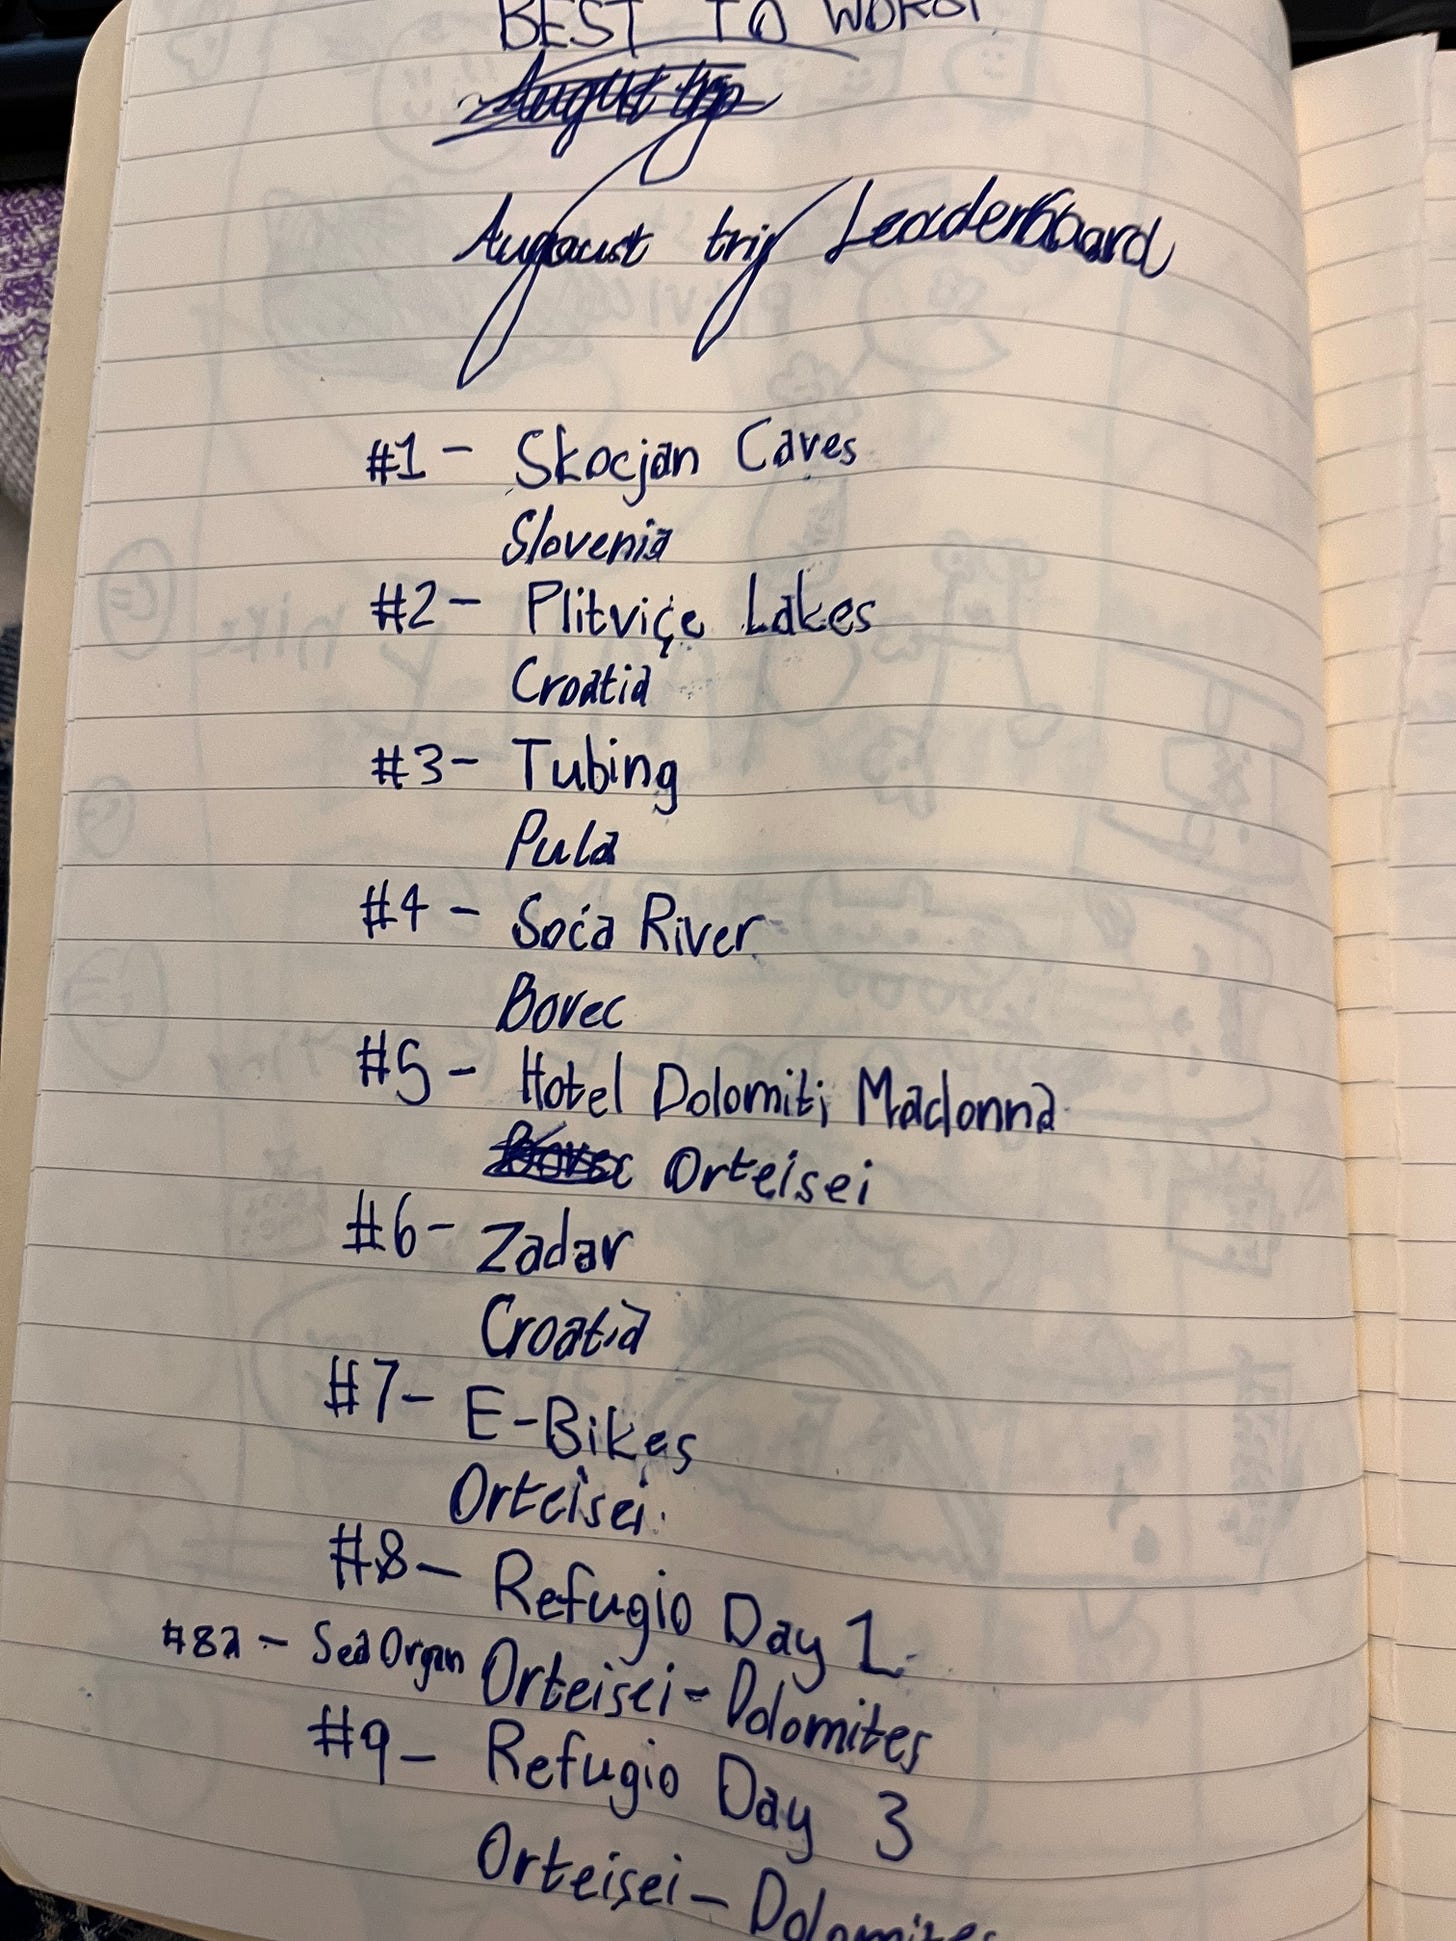 BEST TO WORST
August trip
Augaust trip Leaderboard
#1 - Skocjan Caves
Slovenia
#2 - Plitviçe Lakes
Croatia
#3 - Tubing
Pula
#4 - Soća River
Bovec
#5 - Hotel Dolomiti Madonna
Bovec Orteisei
#6 - Zadar
Croatia
#7 - E-Bikes
Orteisei
#8 - Refugio Day 1
#8a - Sea Organ Orteisei - Dolomites
#9 - Refugio Day 3
Orteisei - Dolomites